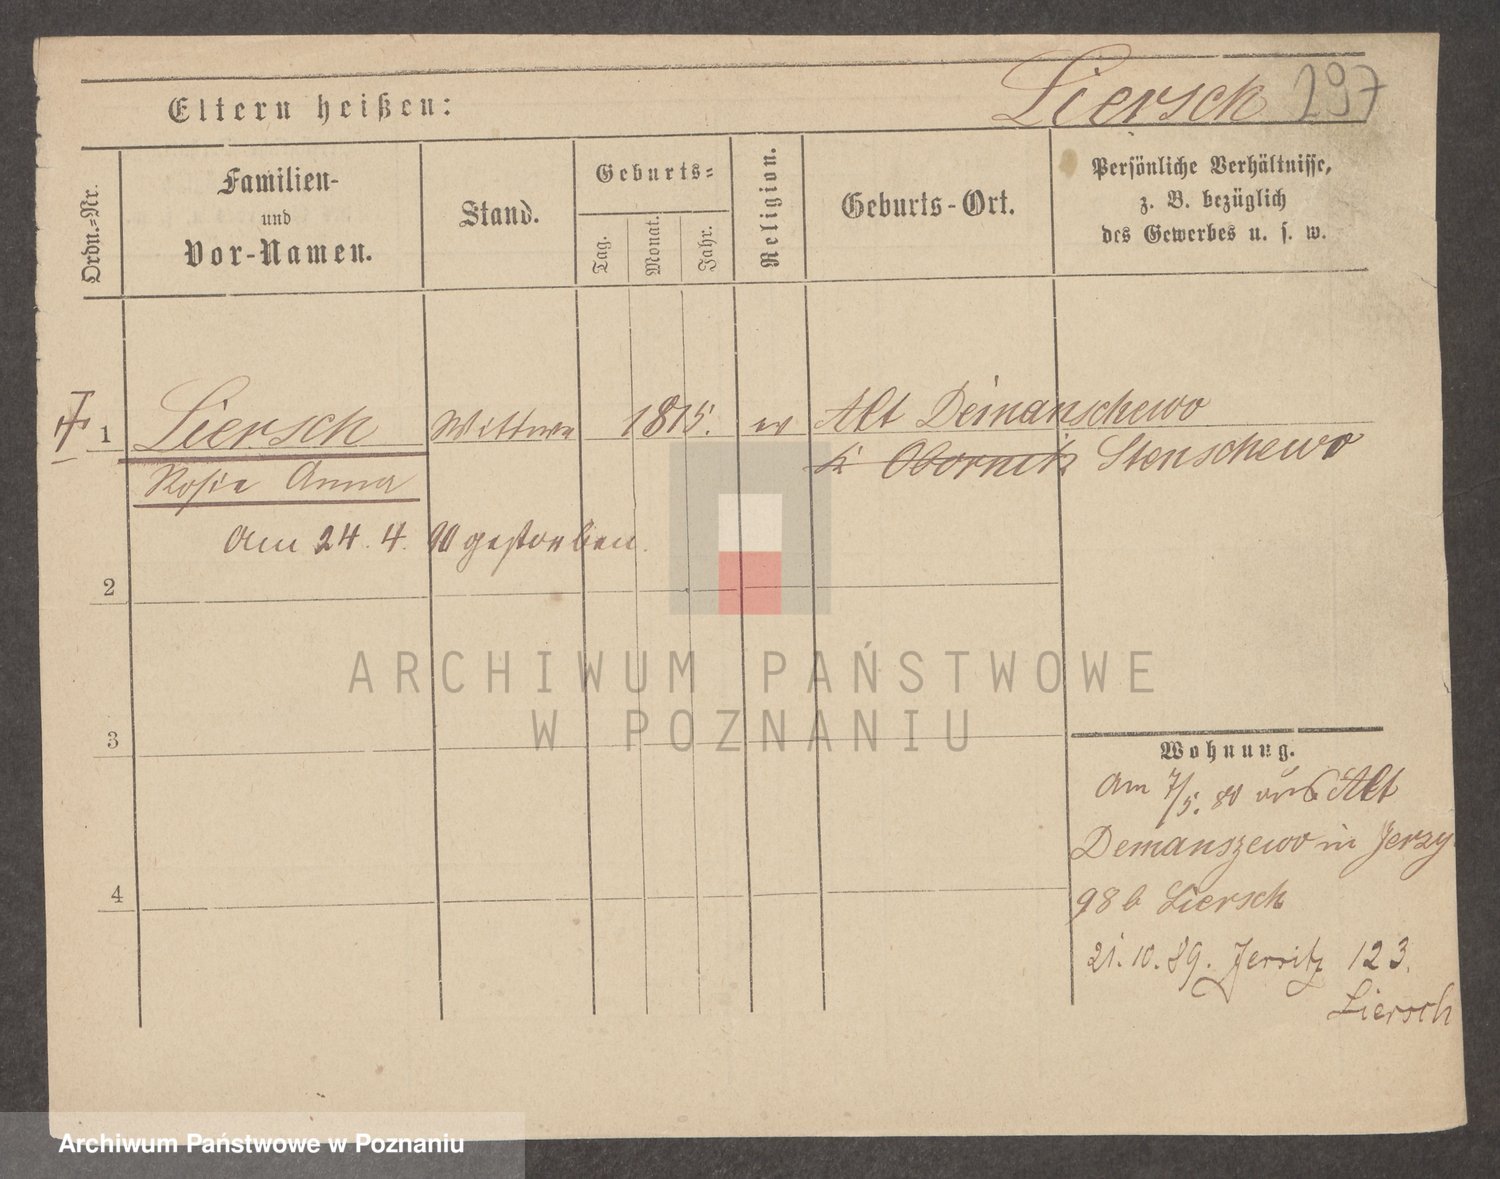 Eltern heißen:
Liersch 297
Ordn.=Nr.
Familien-
und
Vor-Namen.
Stand.
Geburts=
Tag.
Monat.
Jahr.
Religion.
Geburts-Ort.
Persönliche Verhältnisse,
z. B. bezüglich
des Gewerbes u. s. w.
1 Liersch Wittwe 1815. ev Alt Demanschewo
Rosie Anna
K Obornik Stenschewo
Am 24. 4. 90 gestorben.
2
ARCHIWUM PAŃSTWOWE
W POZNANIU
3
4
Wohnung.
Am 7/5. 80 aus Alt
Demanszewo in Jerzy
98 b Liersch
21. 10. 89. Jersitz 123.
Liersch
Archiwum Państwowe w Poznaniu